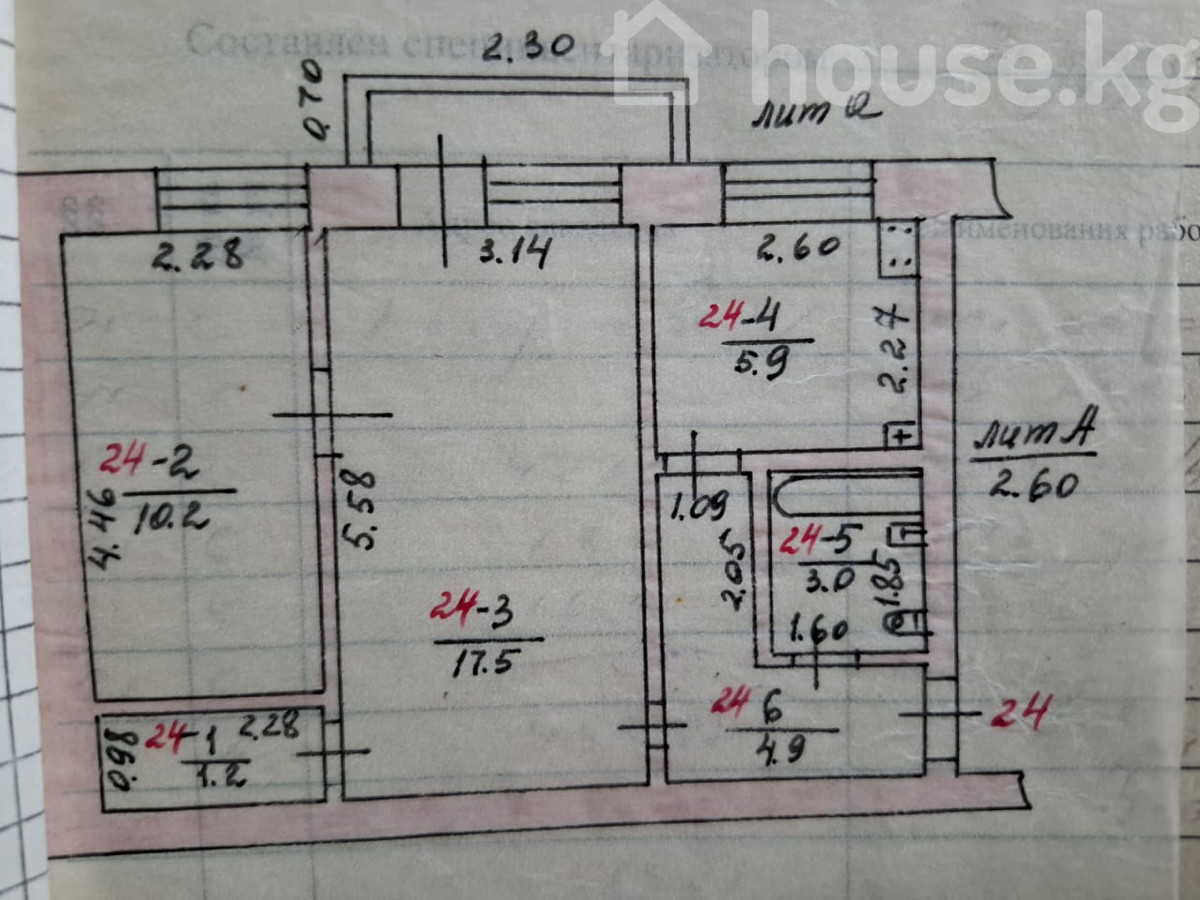 Составлен специ
house.kg
2.30
0.70
лит а
2.28
3.14
2.60
24-4
5.9
2.27
24-2
10.2
4.46
5.58
лит А
2.60
1.09
2.05
24-5
3.0
1.85
1.60
24-3
17.5
24 6
4.9
24
24-1
1.2
2.28
0.98
именования рабо